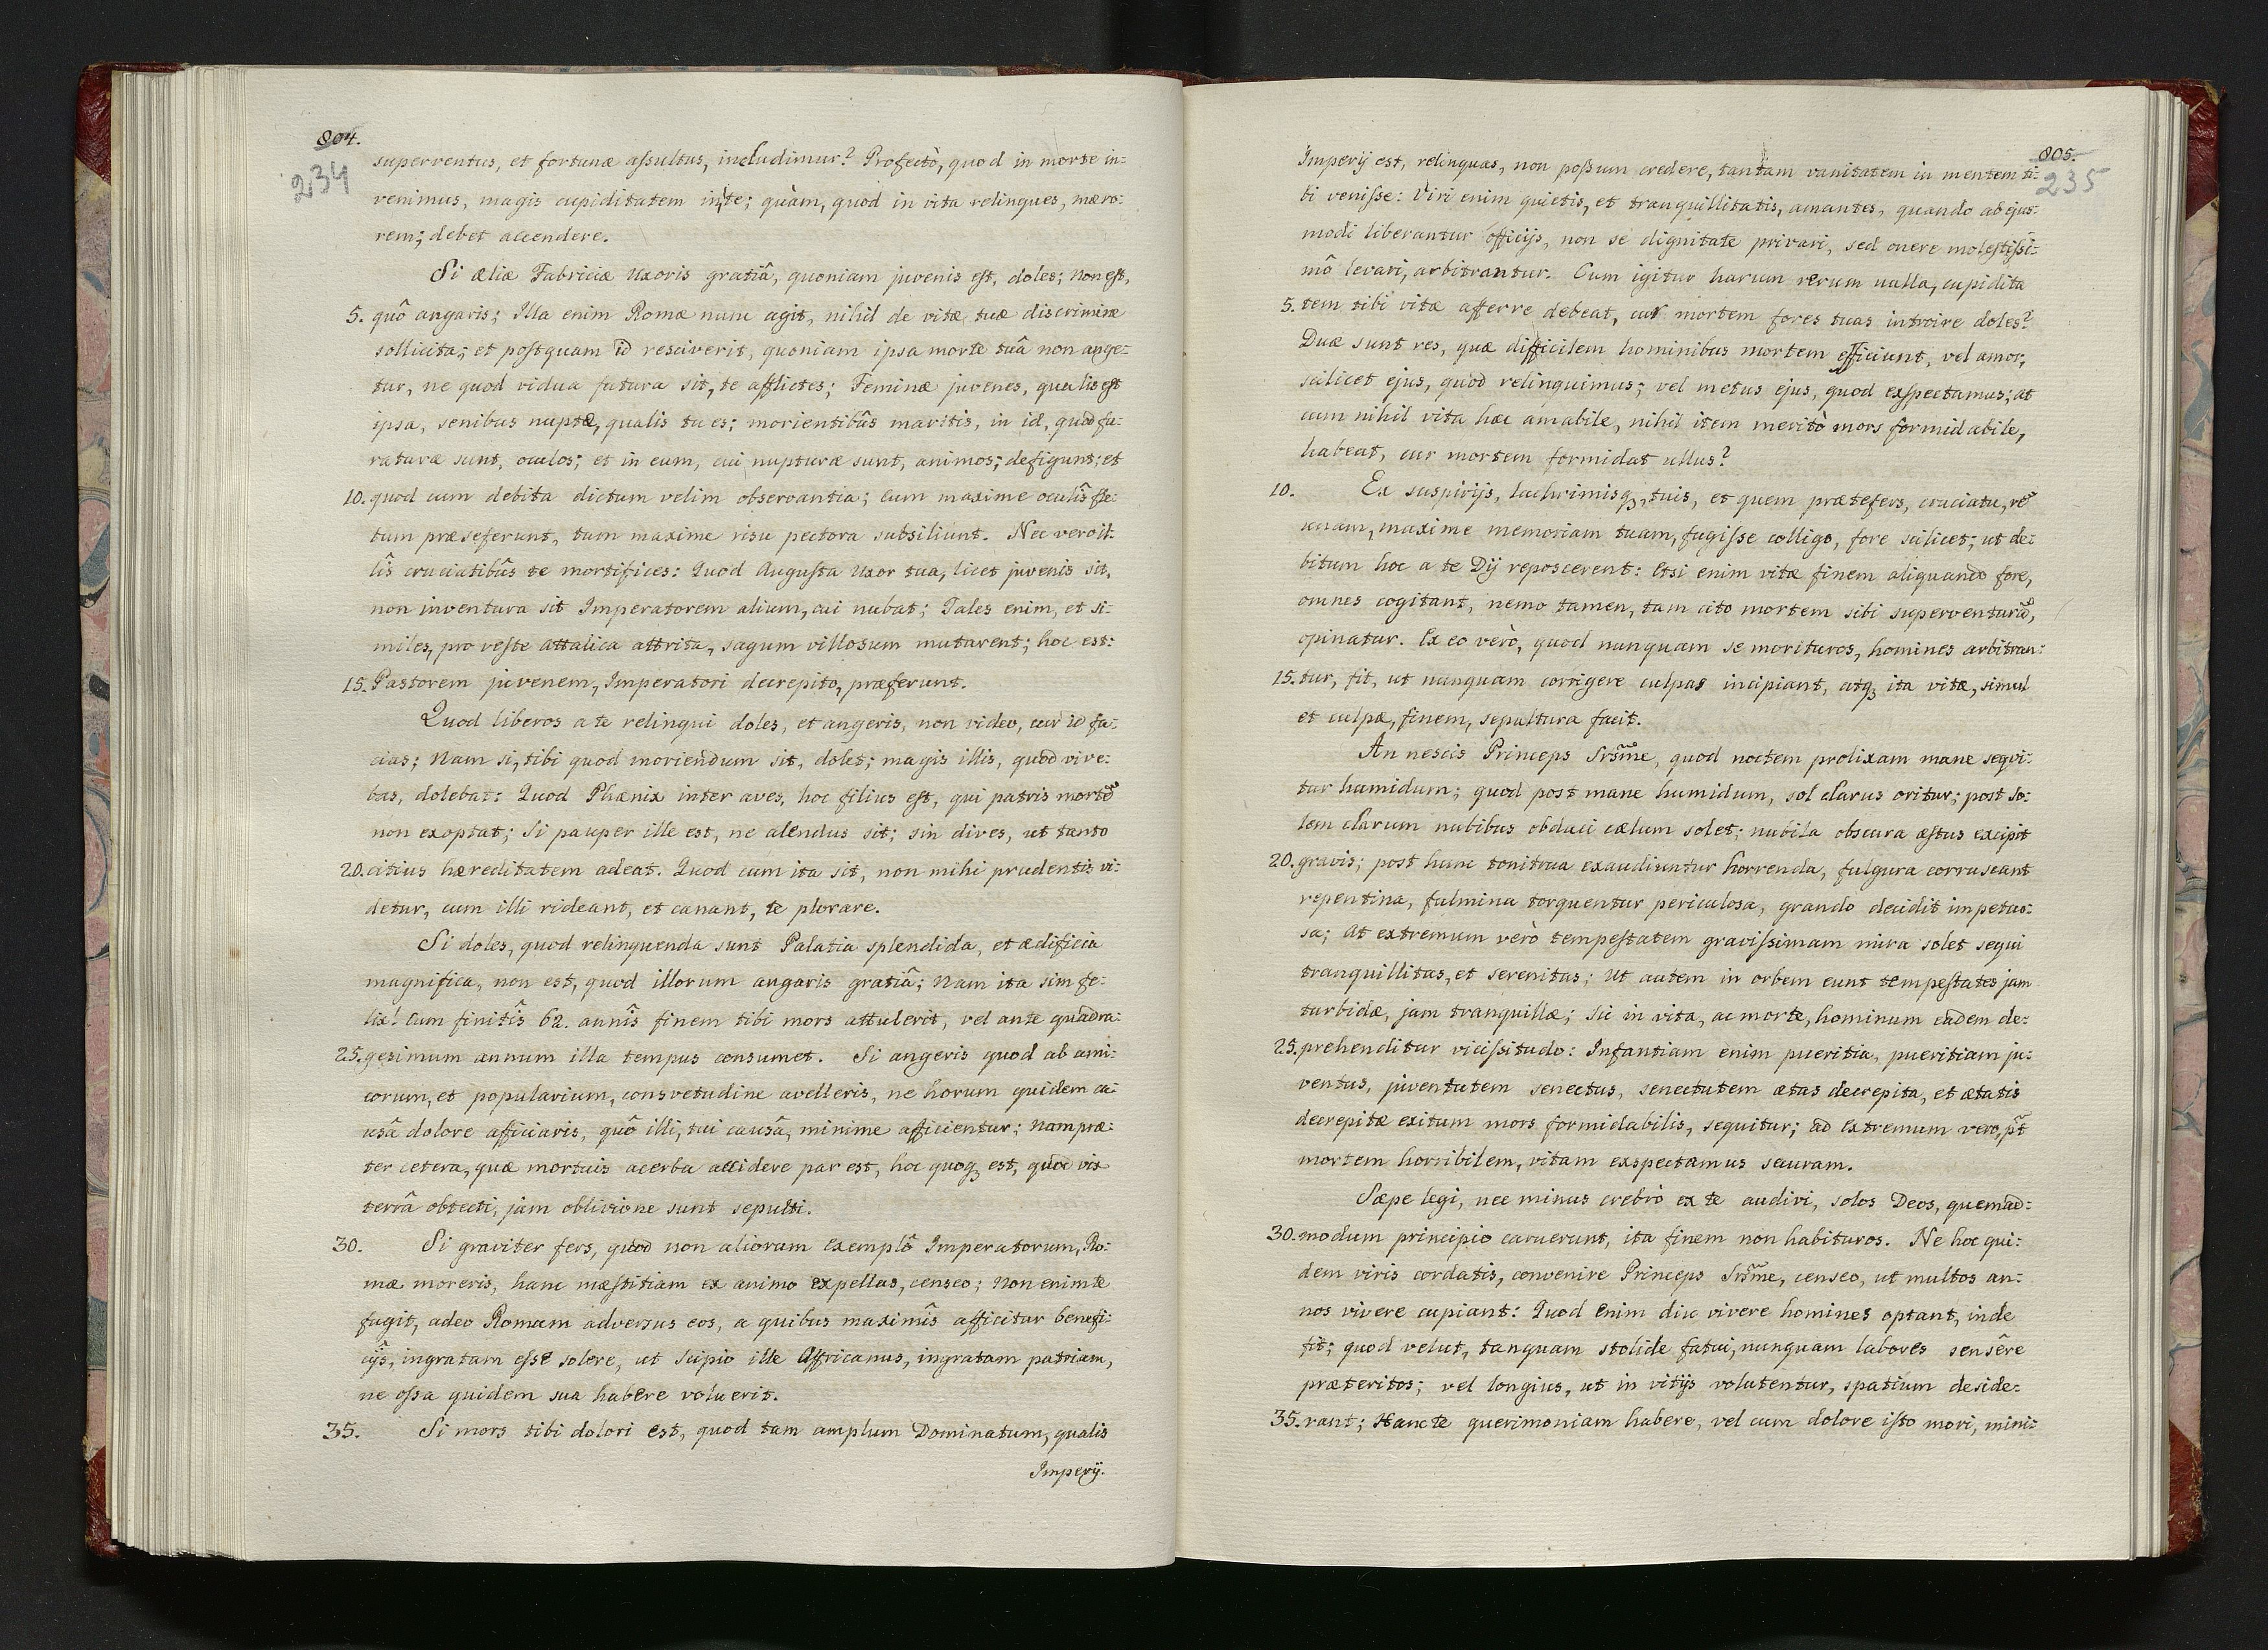 804.
234
superventus, et fortunæ aſsultus, includimur? Profectò, quod in morte in:
venimus, magis cupiditatem in te; quàm, quod in vita relinques, mæro:
rem; debet accendere.
Si æliæ Fabriciæ uxoris gratiâ, quoniam juvenis eſt, doles; non eſt,
5. quô angaris; Illa enim Romæ nunc agit, nihil de vitæ tuæ discrimine
sollicita; et poſtquam id resciverit, quoniam ipsa morte tuâ non ange:
tur, ne quod vidua futura sit, te afflictes; Feminæ juvenes, qualis eſt
ipsa, senibus nuptæ, qualis tu es; morientibûs maritis, in id, quod fu:
raturæ sunt, oculos; et in eum, cui nupturæ sunt, animos; defigunt; et
10. quod cum debita dictum velim observantia; Cum maxime oculîs fle:
tum præseferunt, tum maxime risu pectora subsiliunt. Nec vero il:
lîs cruciatibûs te mortifices: Quod Auguſta uxor tua, licet juvenis sit,
non inventura sit Imperatorem alium, cui nubat; Tales enim, et si:
miles, pro veſte attalica attrita, sagum villosum mutarent; hoc est:
15. Pastorem juvenem, Imperatori decrepito, præferunt.
Quod liberos a te relinqui doles, et angeris, non video, cur id fa:
cias; Nam si, tibi quod moriendum sit, dolet; magis illis, quod vive:
bas, dolebat: Quod Phœnix inter aves, hoc filius eſt, qui patris morte͂
non exoptat; Si pauper ille est, ne alendus sit; sin dives, ut tanto
20. citius hæreditatem adeat. Quod cum ita sit, non mihi prudentis vi:
detur, cum illi rideant, et canant, te plorare.
Si doles, quod relinquenda sunt Palatia splendida, et ædificia
magnifica, non est, quod illorum angaris gratiâ; Nam ita sim fe:
lix! Cum finitîs 62. annîs finem tibi mors attulerit, vel ante quadra:
25. gesimum annum illa tempus consumet. Si angeris quod ab ami:
corum, et popularium, consvetudine avelleris, ne horum quidem ca:
usâ dolore afficiaris, quô illi, tui causâ, minime afficientur; Nam præ:
ter cetera, quæ mortuis acerba accidere par est, hoc quoq₃ est, quod vix
terrâ obtecti, jam oblivione sunt sepulti.
30. Si graviter fers, quod non aliorum exemplô Imperatorum, Ro:
mæ moreris, hanc mæſtitiam ex animo expellas, censeo; Non enim te
fugit, adeo Romam adversus eos, a quibus maximîs afficitur benefi:
cijs, ingratam eſse solere, ut Scipio ille Affricanus, ingratam patriam,
ne oſsa quidem sua habere voluerit.
35. Si mors tibi dolori est, quod tam amplum Dominatum, qualis
Imperij.
805.
235
Imperij est, relinquas, non poßum credere, tantam vanitatem in mentem ti:
bi veniſse: Viri enim quietis, et tranquillitatis, amantes, quando ab ejus:
modi liberantur officijs, non se dignitate privari, sed onere moleſtiſsi:
mô levari, arbitrantur. Cum igitur harum rerum nulla, cupidita
5. tem tibi vitæ afferre debeat, cur mortem fores tuas introire doles?
Duæ sunt res, quæ difficilem hominibus mortem efficiunt, vel amor,
scilicet ejus, quod relinquimus; vel metus ejus, quod exſpectamus; at
cum nihil vita hæc amabile, nihil item meritò mors formidabile,
habeat, cur mortem formidat ullus?
10. Ex suspirijs, lachrimisq₃, tuis, et quem præteſers, cruciatu, re͂
unam, maxime memoriam tuam, fugiſse colligo, fore scilicet; ut de:
bitum hoc a te Dij reposcerent: Etsi enim vitæ finem aliquando fore,
omnes cogitant, nemo tamen, tam cito mortem sibi superventura͂,
opinatur. Ex eo verò, quod nunquam se morituros, homines arbitran:
15. tur, fit, ut nunquam corrigere culpas incipiant, atq₃ ita vitæ, simul
et culpæ, finem, sepultura facit.
An nescis Princeps Srsm͂e, quod noctem prolixam mane seqvi:
tur humidum; quod post mane humidum, sol clarus oritur; post so:
lem clarum nubibus obduci cælum solet; nubila obscura æſtus excipit
20. gravis; post hunc tonitrua exaudiuntur horrenda, fulgura corruscant
repentina, fulmina torquentur periculosa, grando decidit impetuo:
sa; At extremum verò tempeſtatem graviſsimam mira solet sequi
tranquillitas, et serenitas; Ut autem in orbem eunt tempeſtates jam
turbidæ, jam tranquillæ; sic in vita, ac morte, hominum eadem de:
25. prehenditur viciſsitudo: Infantiam enim pueritia, pueritiam ju:
ventus, juventutem senectus, senectutem ætas decrepita, et ætatis
decrepitæ exitum mors formidabilis, sequitur; ad extremum vero, p͂t
mortem horribilem, vitam exspectamus securam.
Sæpe legi, nec minus crebrò ex te audivi, solos Deos, quemad:
30. modum principio caruerunt, ita finem non habituros. Ne hoc qui:
dem viris cordatis, convenire Princeps Srsm͂e, censeo, ut multos an:
nos vivere cupiant: Quod enim diu vivere homines optant, inde
fit; quod velut, tanquam stolide fatui, nunquam labores sensêre
præteritos; vel longius, ut in vitijs volutentur, spatium deside:
35. rant; Hanc te querimoniam habere, vel cum dolore iſto mori, mini: